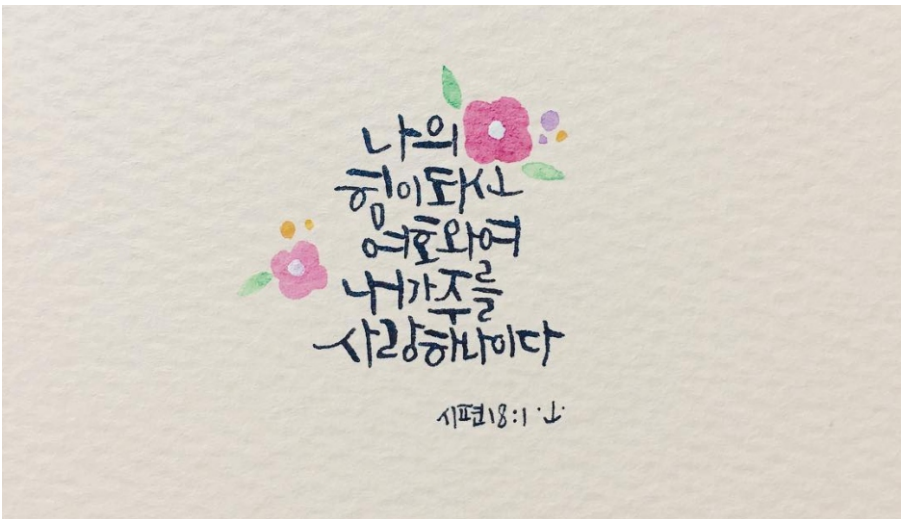 나의
힘이 되신
여호와여
내가 주를
사랑하나이다
시편 18:1